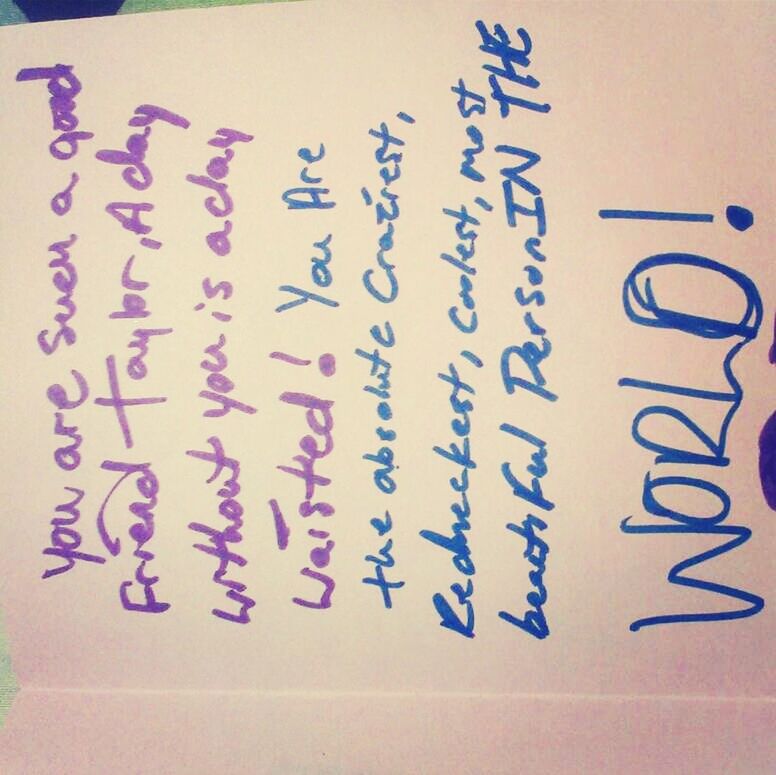 you are such a good
friend Taylor, A day
without you is a day
waisted! You Are
the absolute Craziest,
Redneckest, coolest, most
beautiful Person IN THE
WORLD!